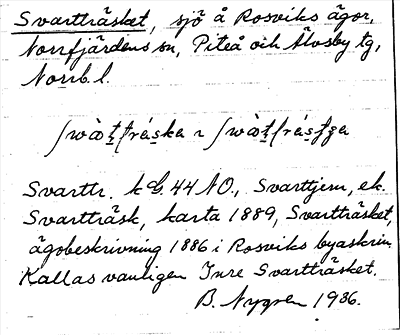 Svartträsket, sjö å Rosviks ägor,
Norrfjärdens sn, Piteå och Älvsby tg,
Norrb. l.
Svarttr. k G. 44 NO., Svarttjern, ek.
Svartträsk, karta 1889, Svartträsket,
ägobeskrivning 1886 i Rosviks byaskrin
Kallas vanligen Inre Svartträsket.
B. Nygren 1936.